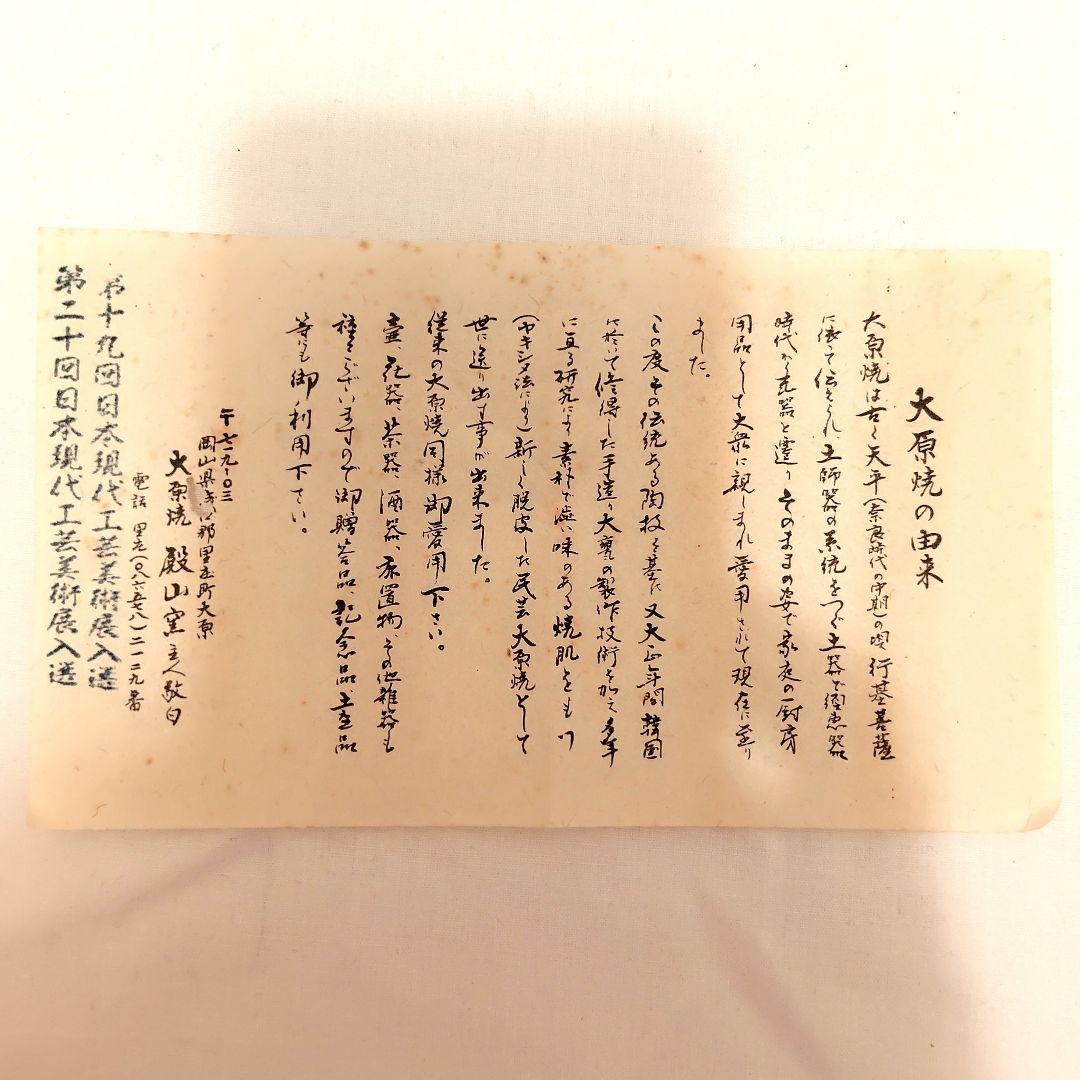 大原焼の由来
大原焼は古く天平(奈良時代の中期)の頃行基菩薩
に依って伝えられ、土師器の系統をつぐ土器で須恵器
時代から瓦器と遷りそのままの姿で家庭の厨房
用品として大衆に親しまれ愛用されて現在に至り
ました。
この度その伝統ある陶技を基に又大正年間韓国
に於いて修得した手造り大甕の製作技術を加え多年
に亘る研究により素朴で渋い味のある焼肌をもつ
(ヤキシメ法により)新しく脱皮した民芸大原焼として
世に送り出す事が出来ました。
従来の大原焼同様御愛用下さい。
壷、花器、茶器、酒器、床置物、その他雑器も
種々ございますので御贈答品、記念品、土産品
等にも御利用下さい。
〒七一九-〇三
岡山県浅口郡里庄町大原
大原焼 殿山窯 主人敬白
電話 里庄(〇八六五六)八-二一二九番
第十九回日本現代工芸美術展入選
第二十回日本現代工芸美術展入選